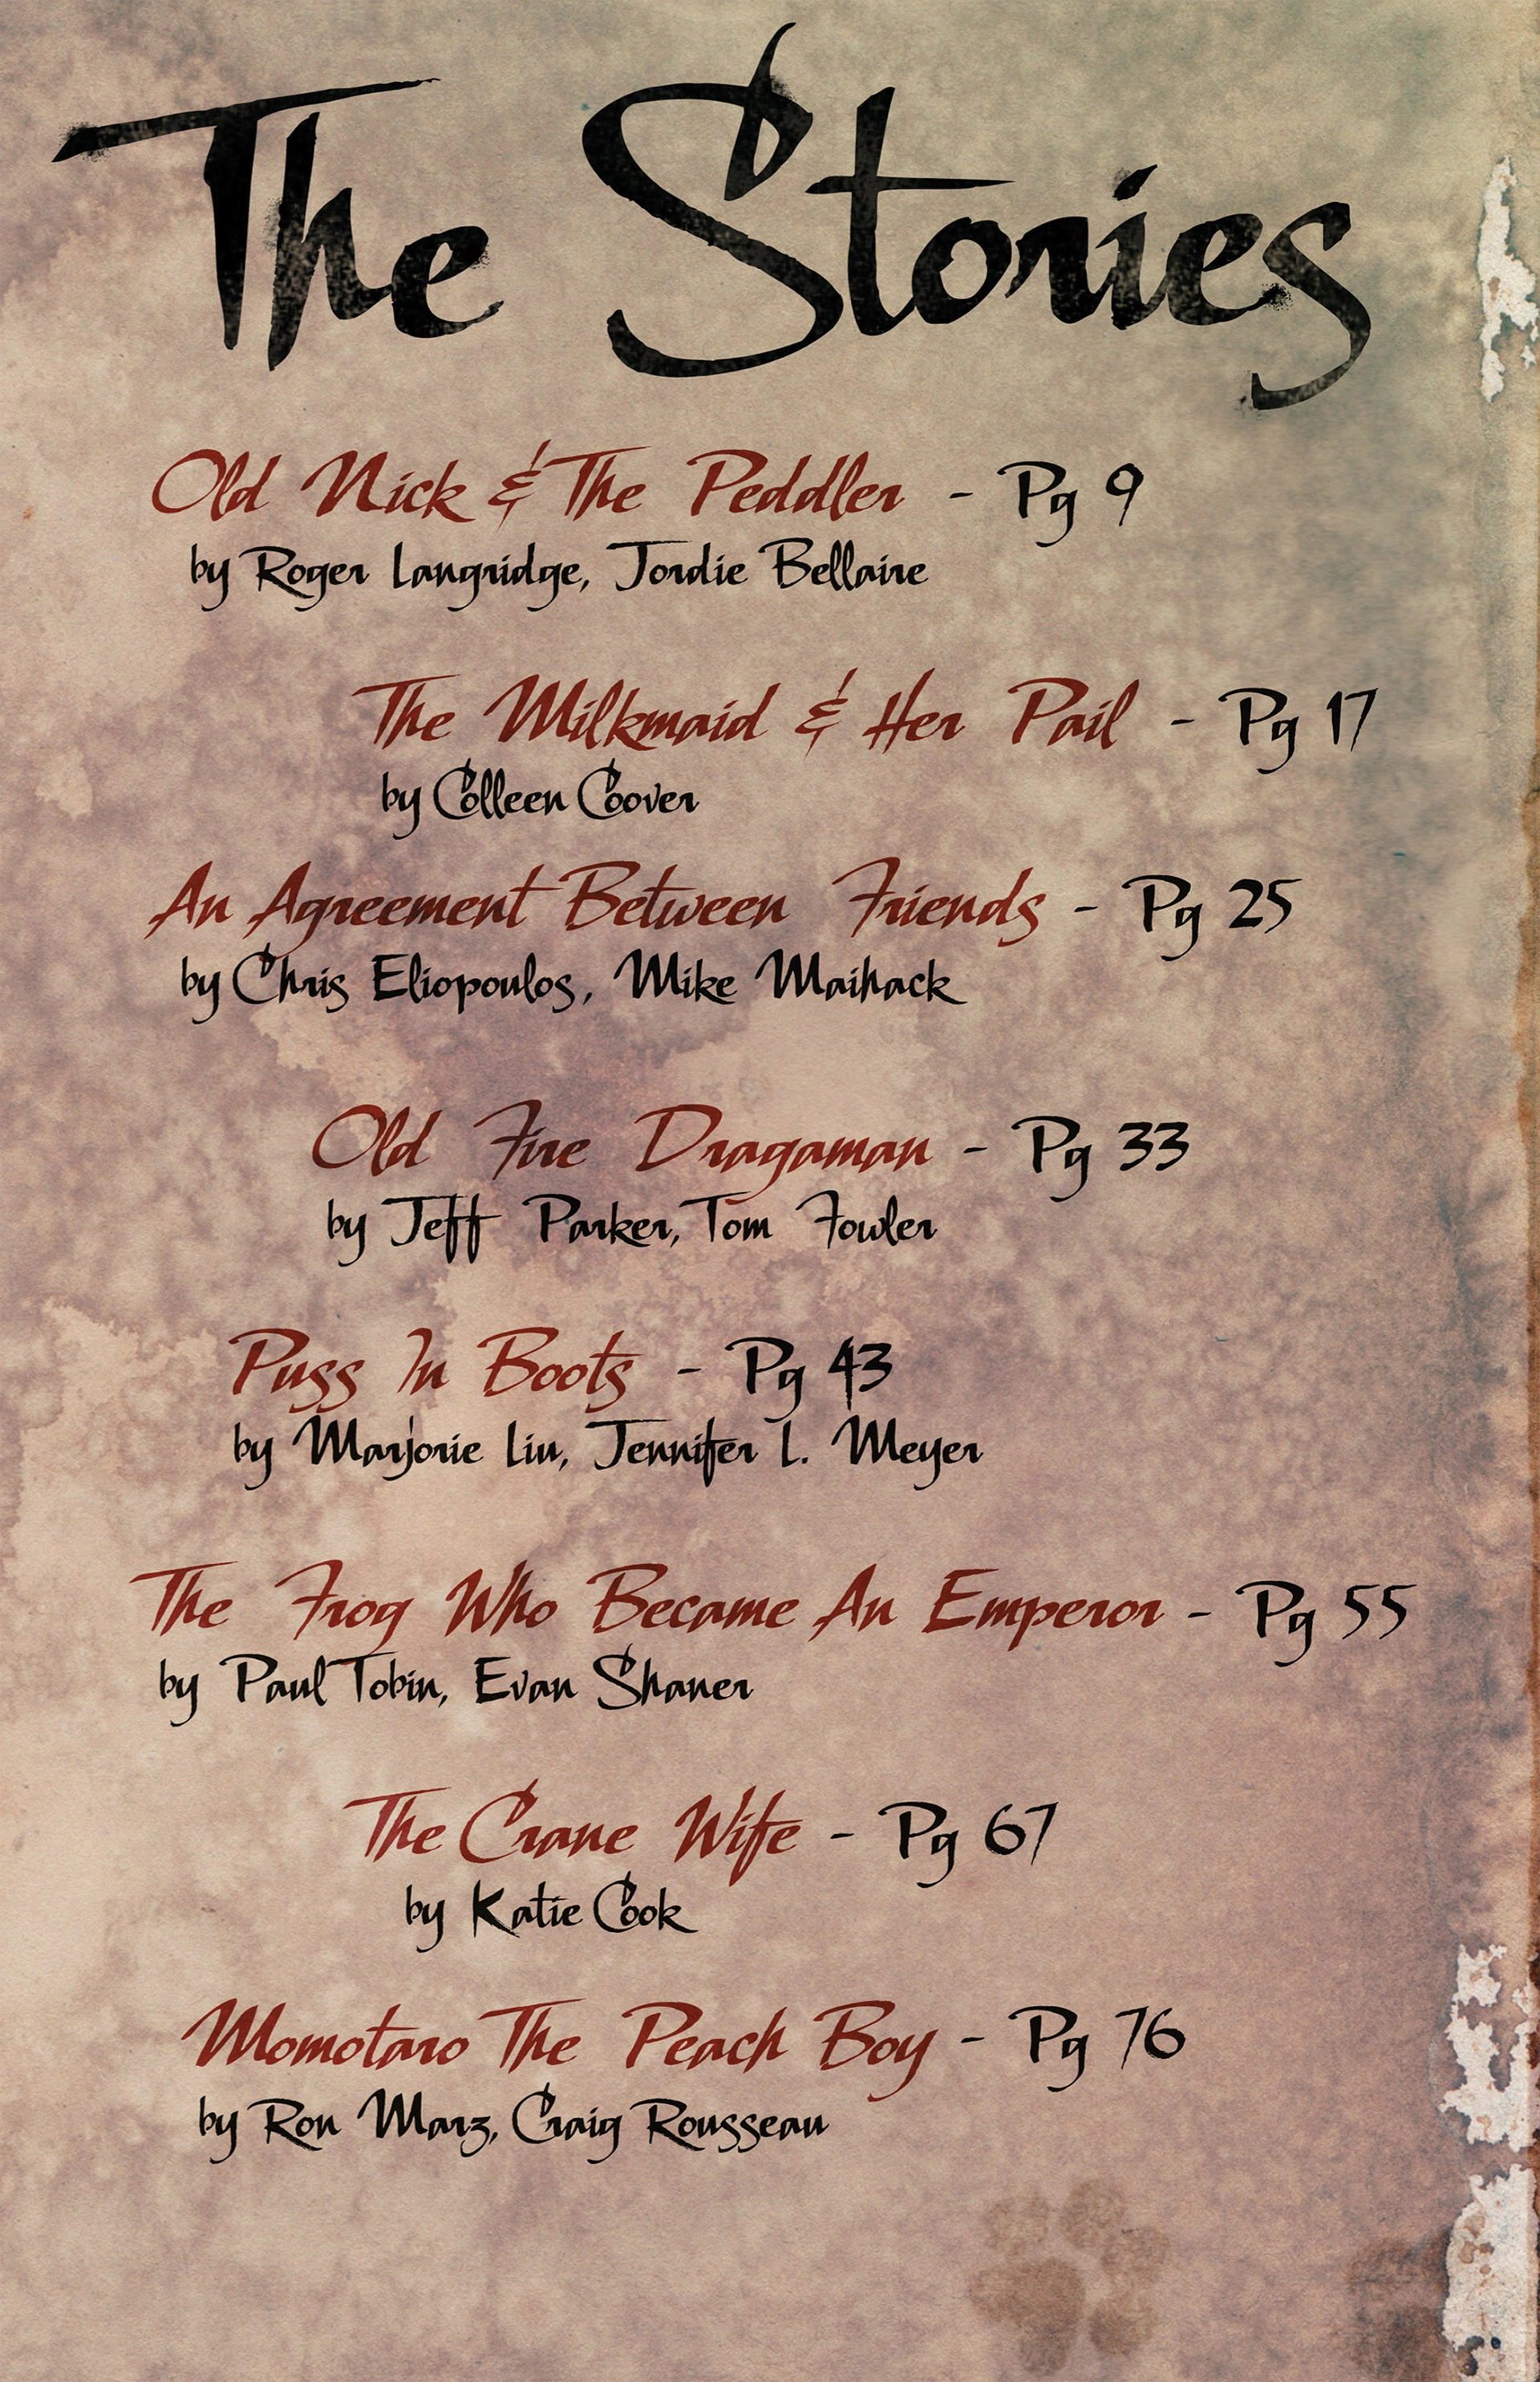 The Stories
Old Nick & The Peddler - Pg 9
by Roger Langridge, Jordie Bellaire
The Milkmaid & Her Pail - Pg 17
by Colleen Coover
An Agreement Between Friends - Pg 25
by Chris Eliopoulos, Mike Maihack
Old Fire Dragaman - Pg 33
by Jeff Parker, Tom Fowler
Puss In Boots - Pg 43
by Marjorie Liu, Jennifer L. Meyer
The Frog Who Became An Emperor - Pg 55
by Paul Tobin, Evan Shaner
The Crane Wife - Pg 67
by Katie Cook
Momotaro The Peach Boy - Pg 76
by Ron Marz, Craig Rousseau